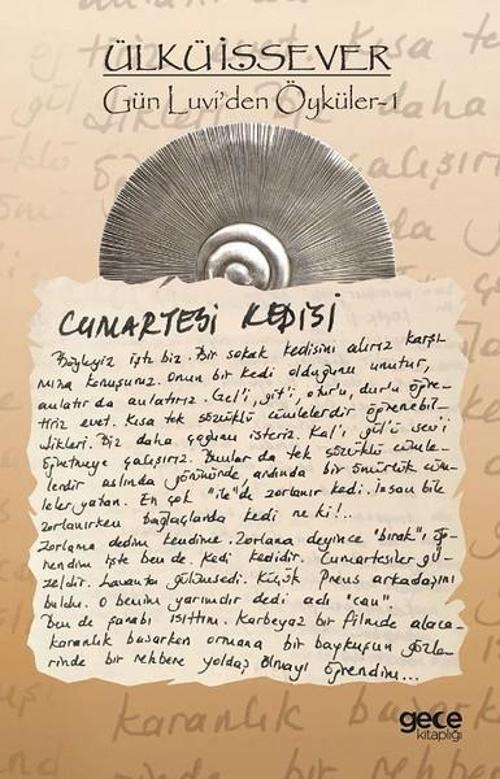 ÜLKÜ İSSEVER
Gün Luvi'den Öyküler-1
CUMARTESİ KEDİSİ
Böyleyiz işte biz. Bir sokak kedisini alırız karşı-
mıza konuşuruz. Onun bir kedi olduğunu unutur,
anlatır da anlatırız. Gel'i, git'i, otur'u, dur'u öğre-
tiriz evet. Kısa tek sözcüklü cümlelerdir öğrenebil-
dikleri. Biz daha çoğunu isteriz. Kal'ı gül'ü sev'i
öğretmeye çalışırız. Bunlar da tek sözcüklü cümle-
lerdir aslında görünürde, ardında bir ömürlük cüm-
leler yatan. En çok "ile"de zorlanır kedi. İnsan bile
zorlanırken bağlaçlarda kedi ne ki!..
Zorlama dedim kendime. Zorlama deyince "bırak"ı öğ-
rendim işte ben de. Kedi kedidir. Cumartesiler gü-
zeldir. Lavanta gülümsedi. Küçük Prens arkadaşını
buldu. O benim yarımdır dedi adı "can".
Ben de şarabı ısıttım. Karbeyaz bir filmde alaca-
karanlık basarken ormana bir baykuşun gözle-
rinde bir rehbere yoldaş olmayı öğrendim...
gece
kitaplığı